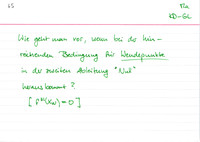 65 Ma
KD-GL
Wie geht man vor, wenn bei der hin-
reichenden Bedingung für Wendepunkte
in der zweiten Ableitung "Null"
herauskommt?
[ f'''(xw) = 0 ]